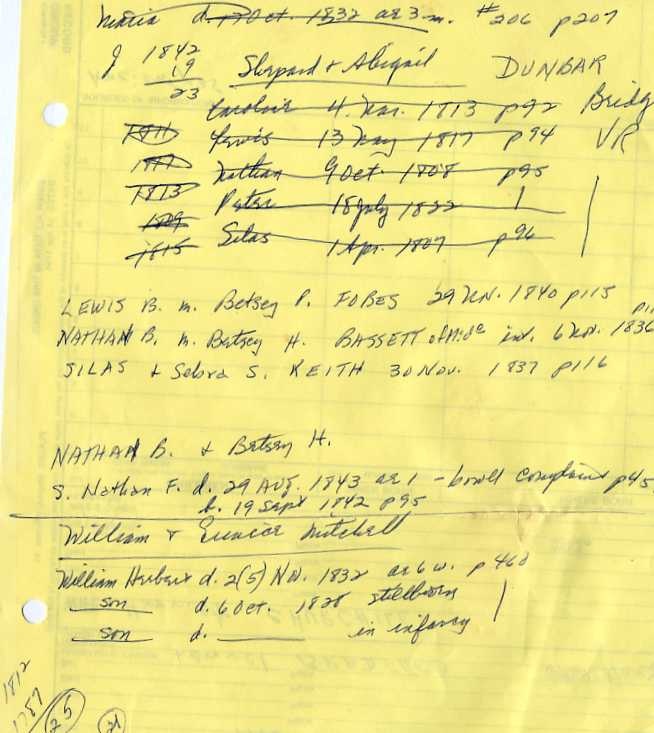 Maria d. 17 Oct. 1832 ae 3 m. #206 p207
J 1842
19
23
Shepard & Abigail DUNBAR
Caroline 4 Mar. 1813 p92 Bridg
1811 Lewis 13 May 1817 p94 VR
Nathan 9 Oct. 1808 p95
1813 Peter 18 July 1822
1809 Silas 1 Apr. 1807 p96
1815
LEWIS B. m. Betsey P. FOBES 29 Nov. 1840 p115
NATHAN B. m. Betsey H. BASSETT of Midd int. 6 Nov. 1836
SILAS & Sebra S. KEITH 30 Nov. 1837 p116
NATHAN B. & Betsey H.
S. Nathan F. d. 29 AUG. 1843 ae 1 - bowell complaint p45
b. 19 Sept 1842 p95
William & Eunice Mitchell
William Herbert d. 2(5) Nov. 1832 ae 6 w. p 460
son d. 6 Oct. 1828 stillborn
son d. ______ in infancy
1812
1787
25
21